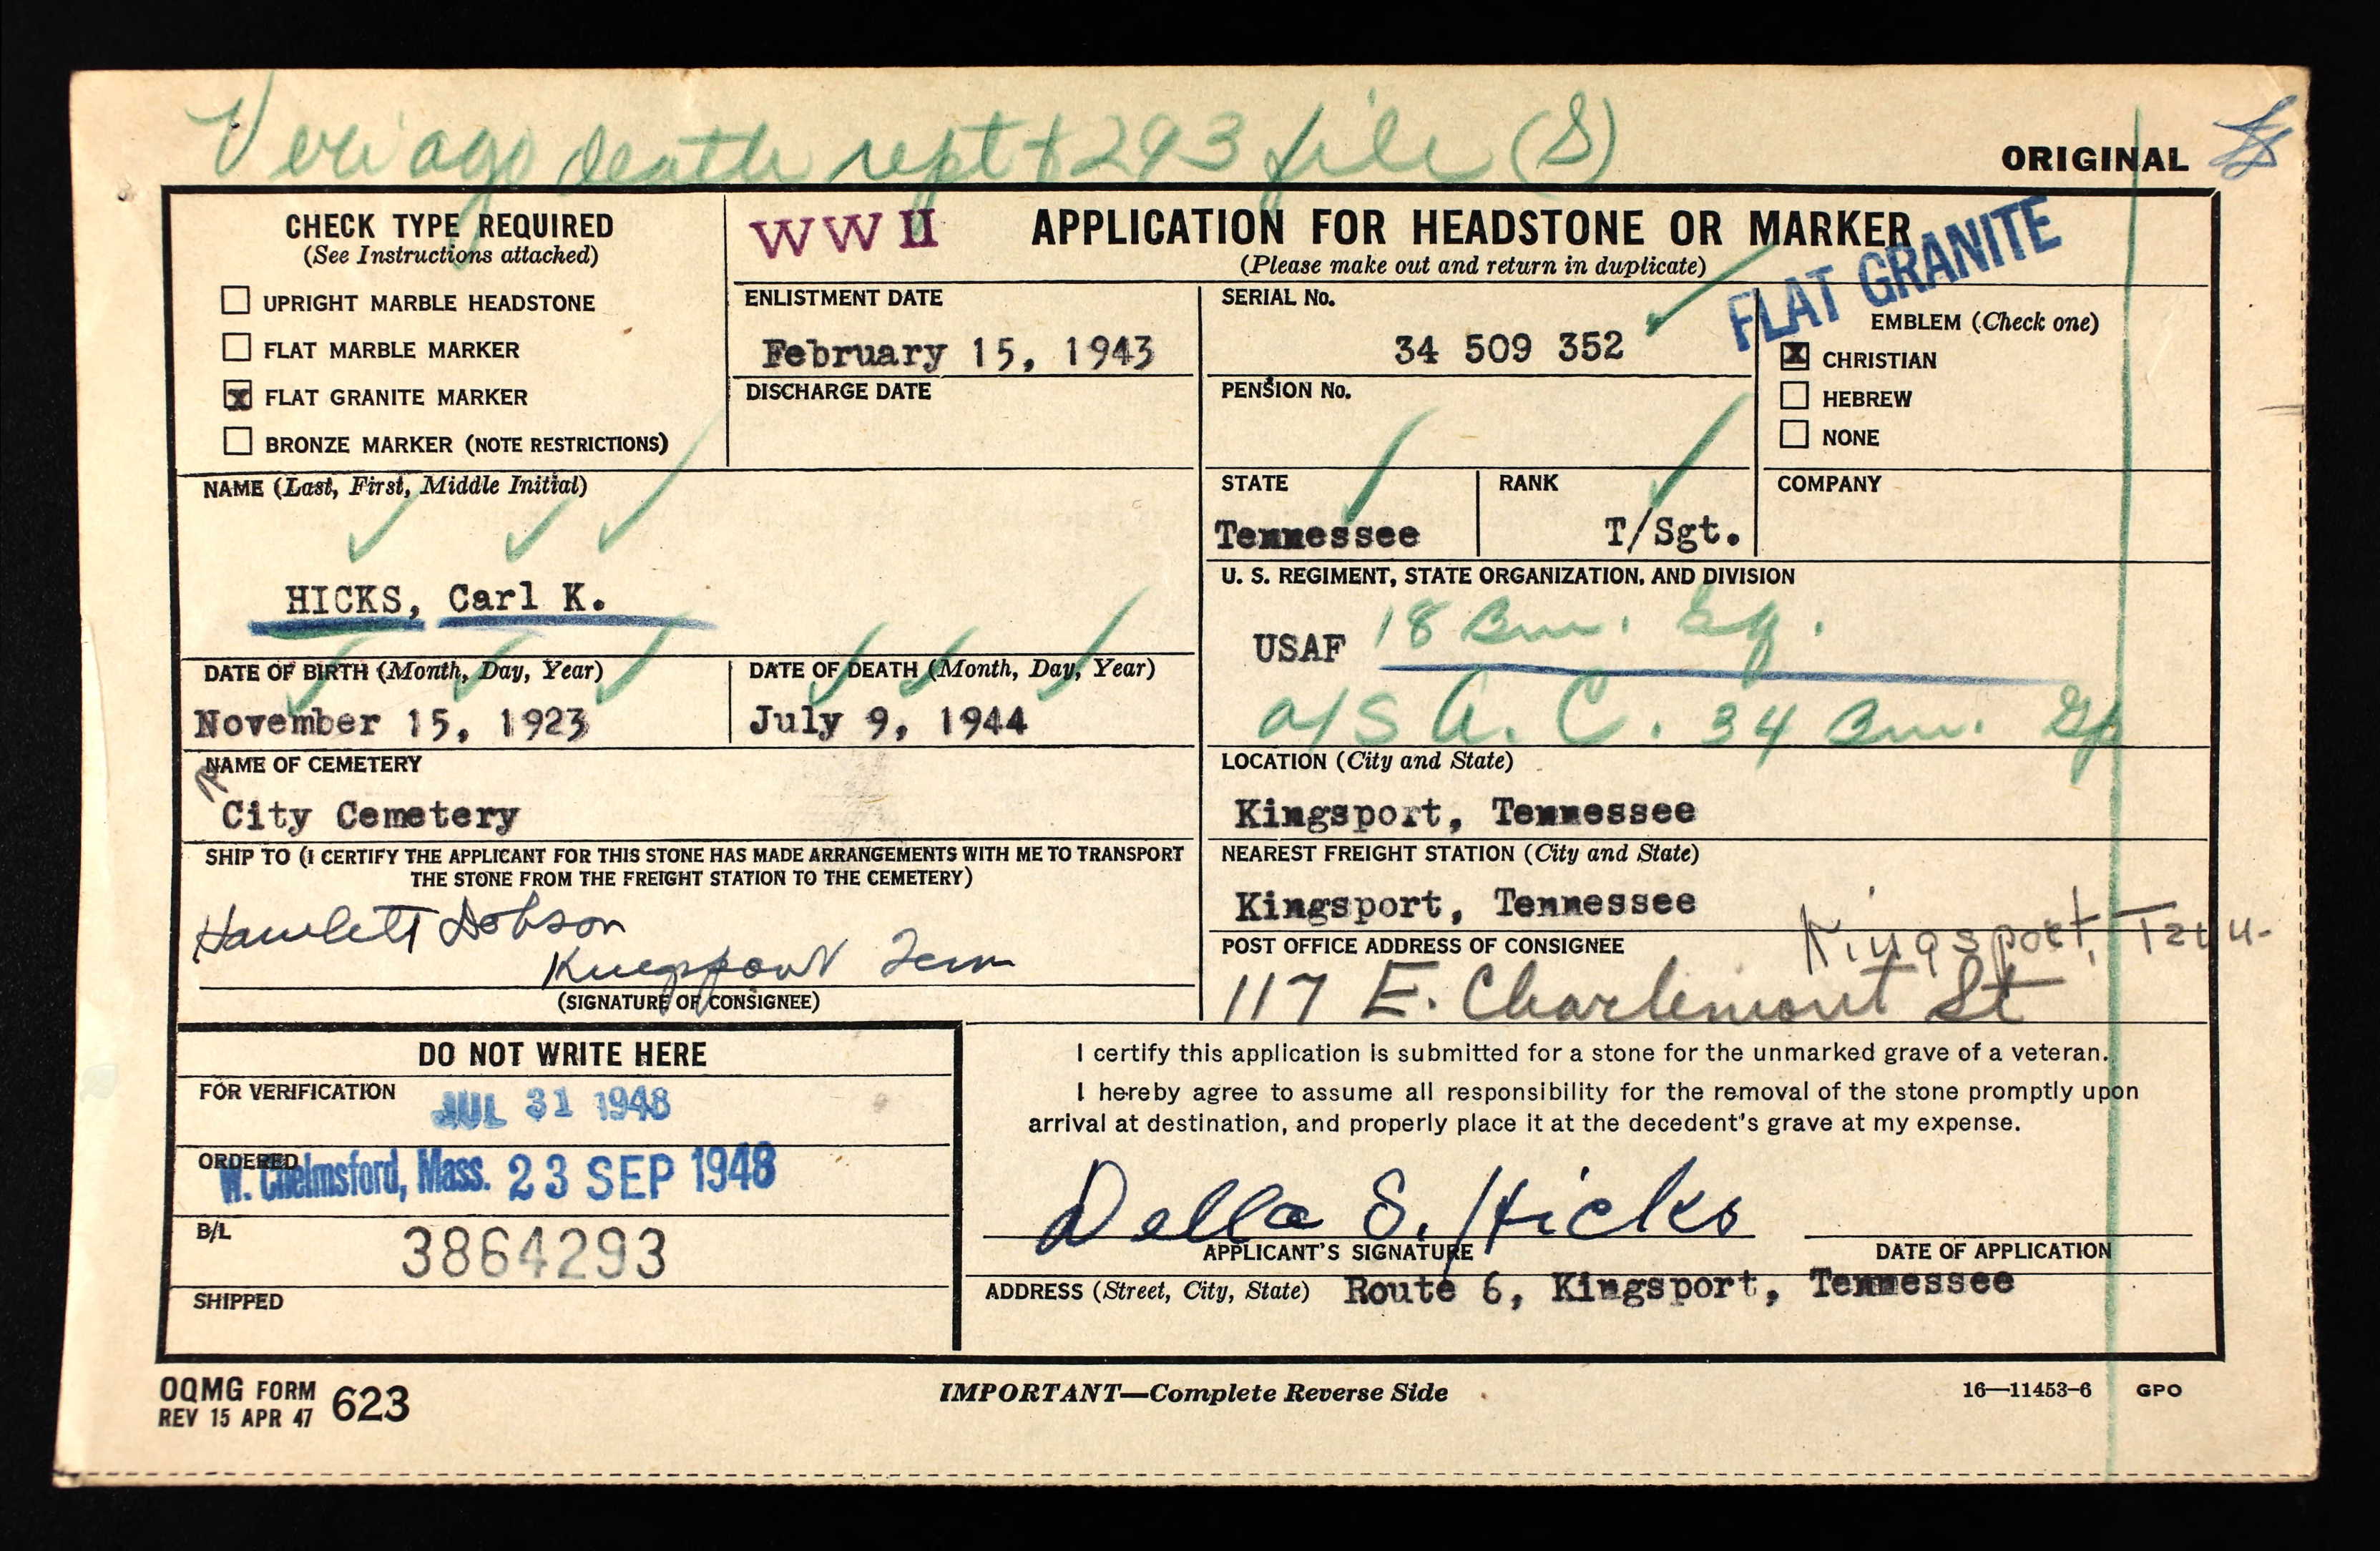 Veri ago death rept + 293 file (S)
ORIGINAL
CHECK TYPE REQUIRED
(See Instructions attached)
☐ UPRIGHT MARBLE HEADSTONE
☐ FLAT MARBLE MARKER
☒ FLAT GRANITE MARKER
☐ BRONZE MARKER (NOTE RESTRICTIONS)
WW II
APPLICATION FOR HEADSTONE OR MARKER
(Please make out and return in duplicate)
FLAT GRANITE
ENLISTMENT DATE
February 15, 1943
DISCHARGE DATE
SERIAL No.
34 509 352
PENSION No.
EMBLEM (Check one)
☒ CHRISTIAN
☐ HEBREW
☐ NONE
NAME (Last, First, Middle Initial)
HICKS, Carl K.
STATE
Tennessee
RANK
T/Sgt.
COMPANY
U. S. REGIMENT, STATE ORGANIZATION, AND DIVISION
USAF 18 Bm. Sq.
a/s A. C. 34 Bm. Gp
DATE OF BIRTH (Month, Day, Year)
November 15, 1923
DATE OF DEATH (Month, Day, Year)
July 9, 1944
NAME OF CEMETERY
City Cemetery
LOCATION (City and State)
Kingsport, Tennessee
SHIP TO (I CERTIFY THE APPLICANT FOR THIS STONE HAS MADE ARRANGEMENTS WITH ME TO TRANSPORT
THE STONE FROM THE FREIGHT STATION TO THE CEMETERY)
Hamlett Dobson
Kingsport Tenn
(SIGNATURE OF CONSIGNEE)
NEAREST FREIGHT STATION (City and State)
Kingsport, Tennessee
POST OFFICE ADDRESS OF CONSIGNEE
Kingsport, Tenn.
117 E. Charlemont St
DO NOT WRITE HERE
FOR VERIFICATION
JUL 31 1948
ORDERED
W. Chelmsford, Mass. 23 SEP 1948
B/L
3864293
SHIPPED
I certify this application is submitted for a stone for the unmarked grave of a veteran.
I hereby agree to assume all responsibility for the removal of the stone promptly upon
arrival at destination, and properly place it at the decedent's grave at my expense.
Della S. Hicks
APPLICANT'S SIGNATURE
DATE OF APPLICATION
ADDRESS (Street, City, State) Route 6, Kingsport, Tennessee
OQMG FORM 623
REV 15 APR 47
IMPORTANT—Complete Reverse Side
16—11453-6 GPO